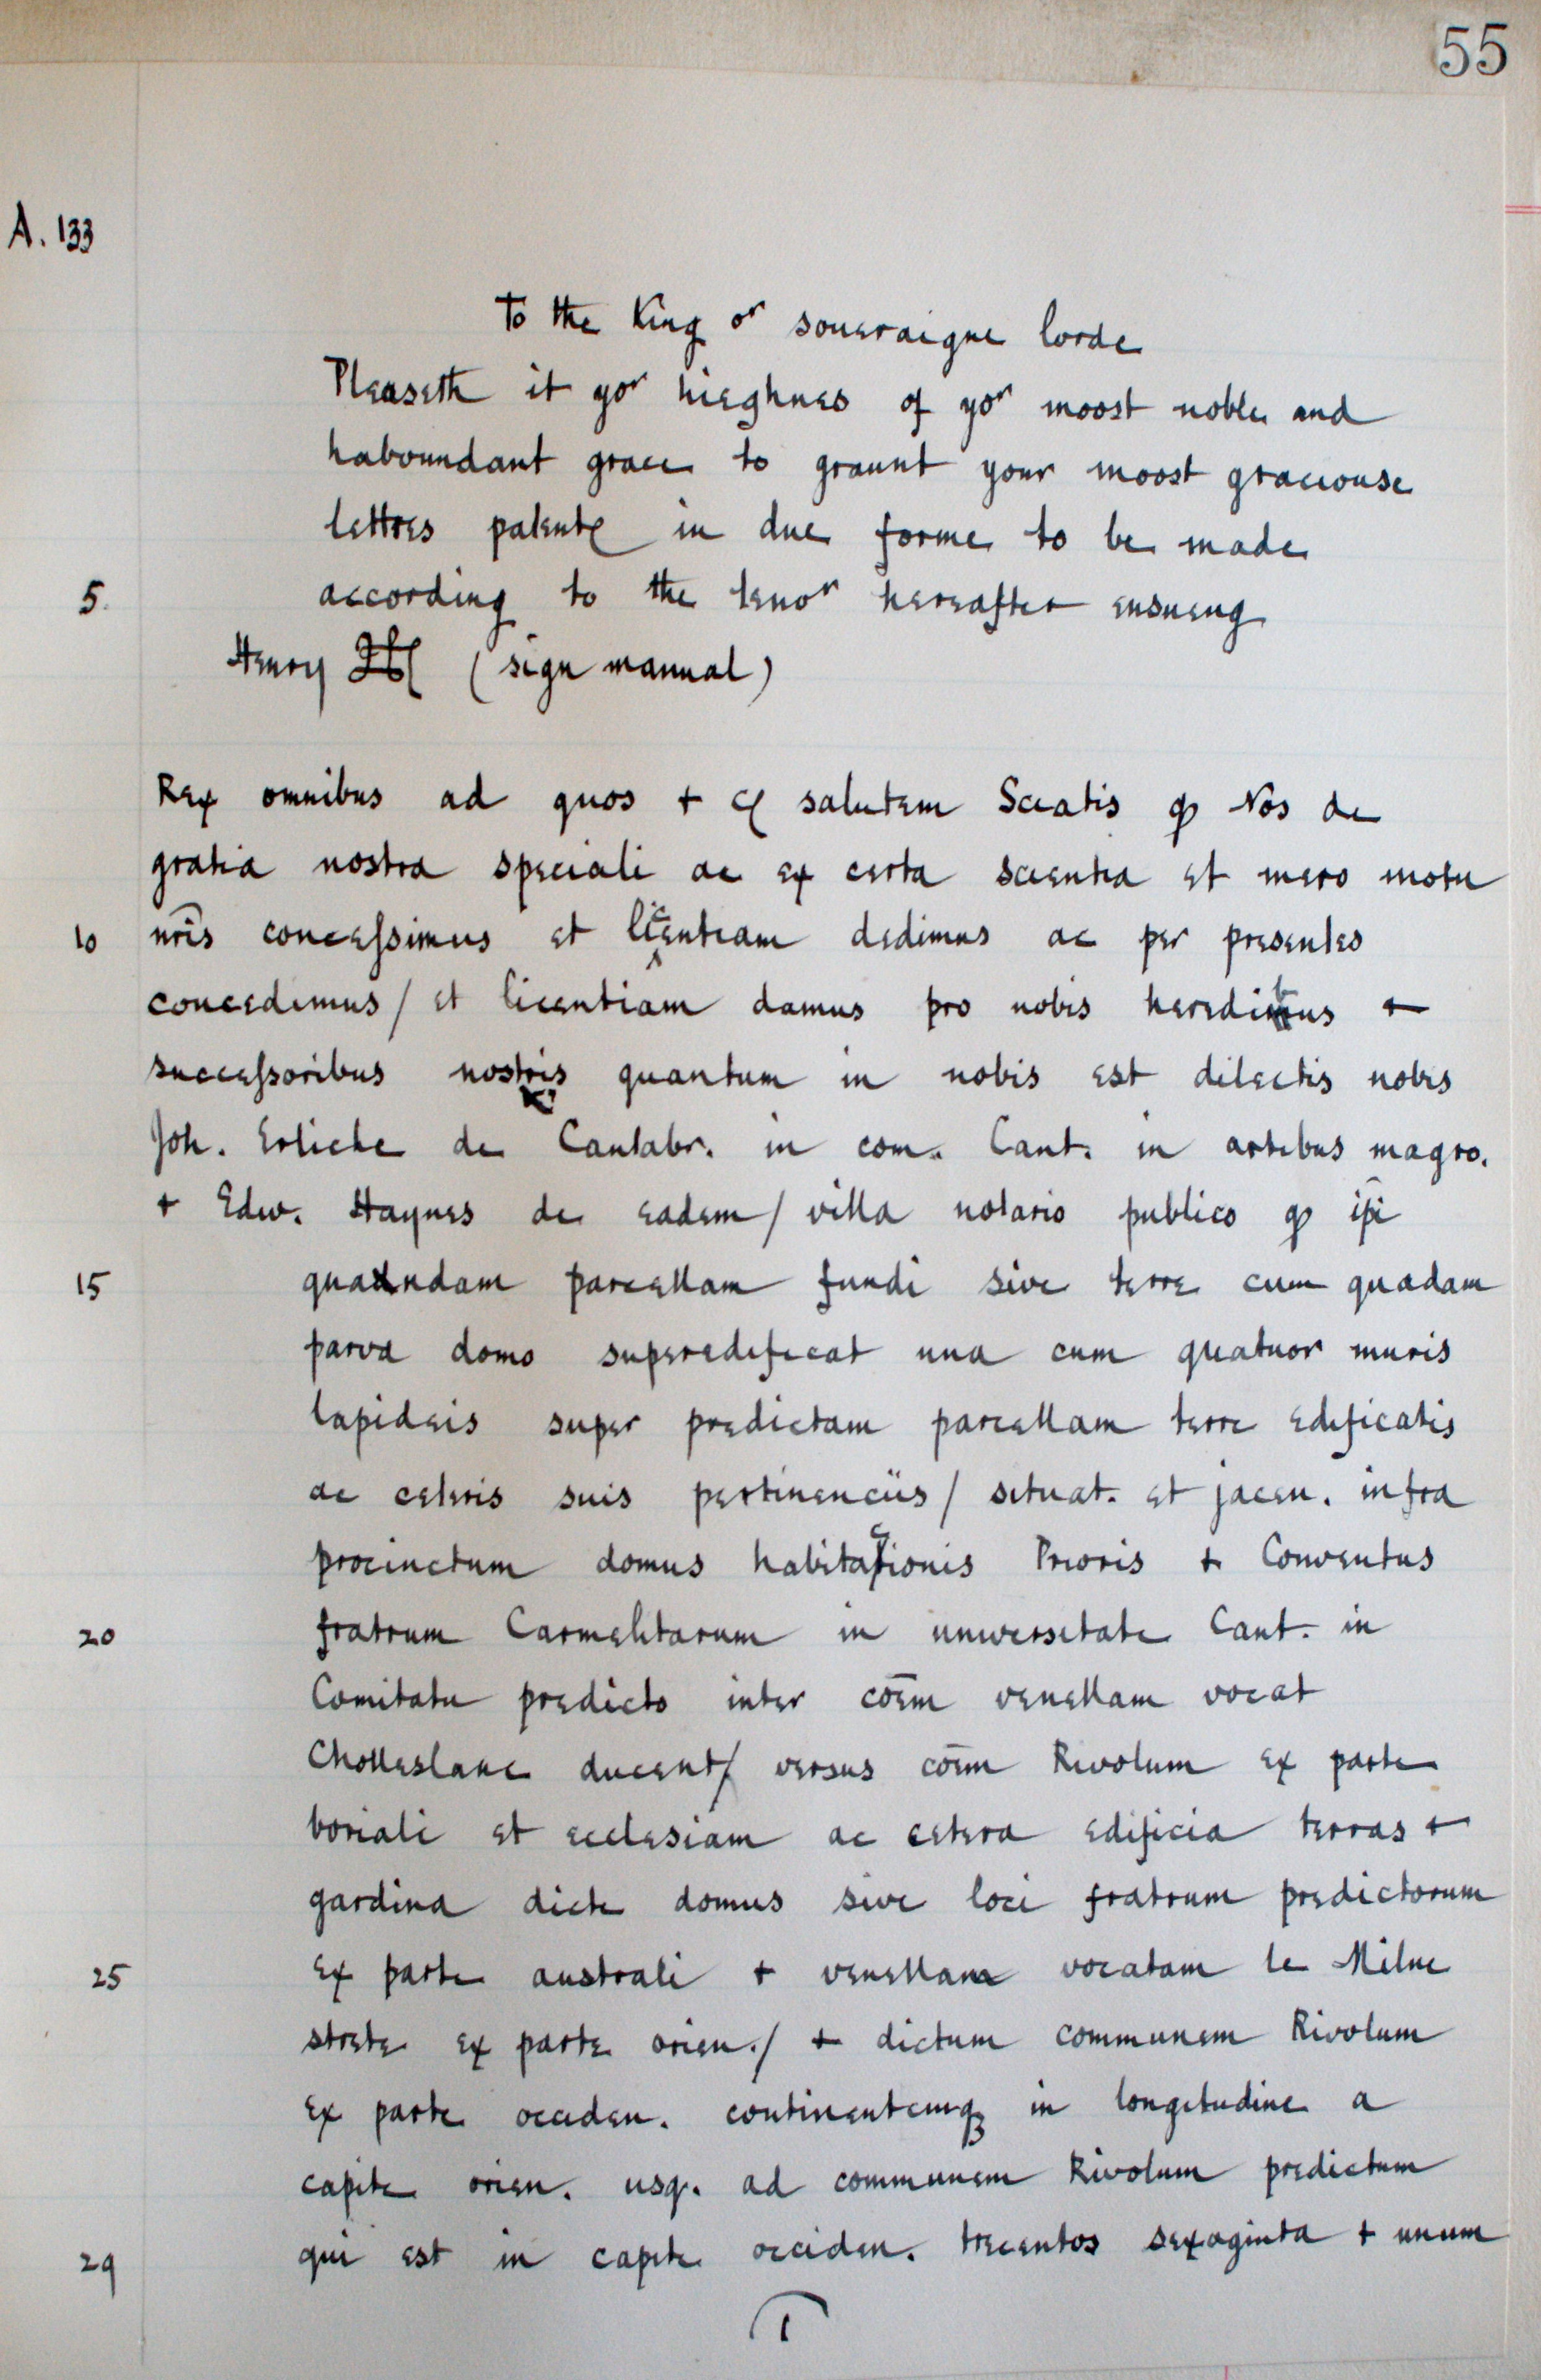 55
A. 133
To the King oʳ soueraigne lorde
Pleaseth it yoʳ hieghnes of yoʳ moost noble and
haboundant grace to graunt your moost graciouse
lettres patentꝭ in due forme to be made
5. according to the tenoʳ hereafter ensueng
Henry H (sign manual)
Rex omnibus ad quos + cꝭ salutem Sciatis ꝙ Nos de
gratia nostra speciali ac ex certa scientia et mero motu
10 nr̄is concessimus et licentiam dedimus ac per presentes
concedimus / et licentiam damus pro nobis heredibus +
successoribus nostris quantum in nobis est dilectis nobis
Joh. Erliche de Cantabr. in com. Cant. in artibus magro.
+ Edw. Haynes de eadem / villa notario publico ꝙ ip̄i
15 quandam parcellam fundi sive terre cum quadam
parva domo superedificat una cum quatuor muris
lapideis super predictam parcellam terre edificatis
ac ceteris suis pertinenciis / situat. et jacen. infra
procinctum domus habitacionis Prioris + Conventus
20 fratrum Carmelitarum in universitate Cant. in
Comitatu predicto inter cōem venellam vocat
Cholleslane ducent / versus cōem Rivolum ex parte
boriali et ecclesiam ac cetera edificia terras +
gardina dicte domus sive loci fratrum predictorum
25 ex parte australi + venellam vocatam le Milne
strete ex parte orien. / + dictum communem Rivolum
ex parte occiden. continentemqꝫ in longitudine a
capite orien. usq. ad communem Rivolum predictum
29 qui est in capite occiden. trecentos sexaginta + unum
1